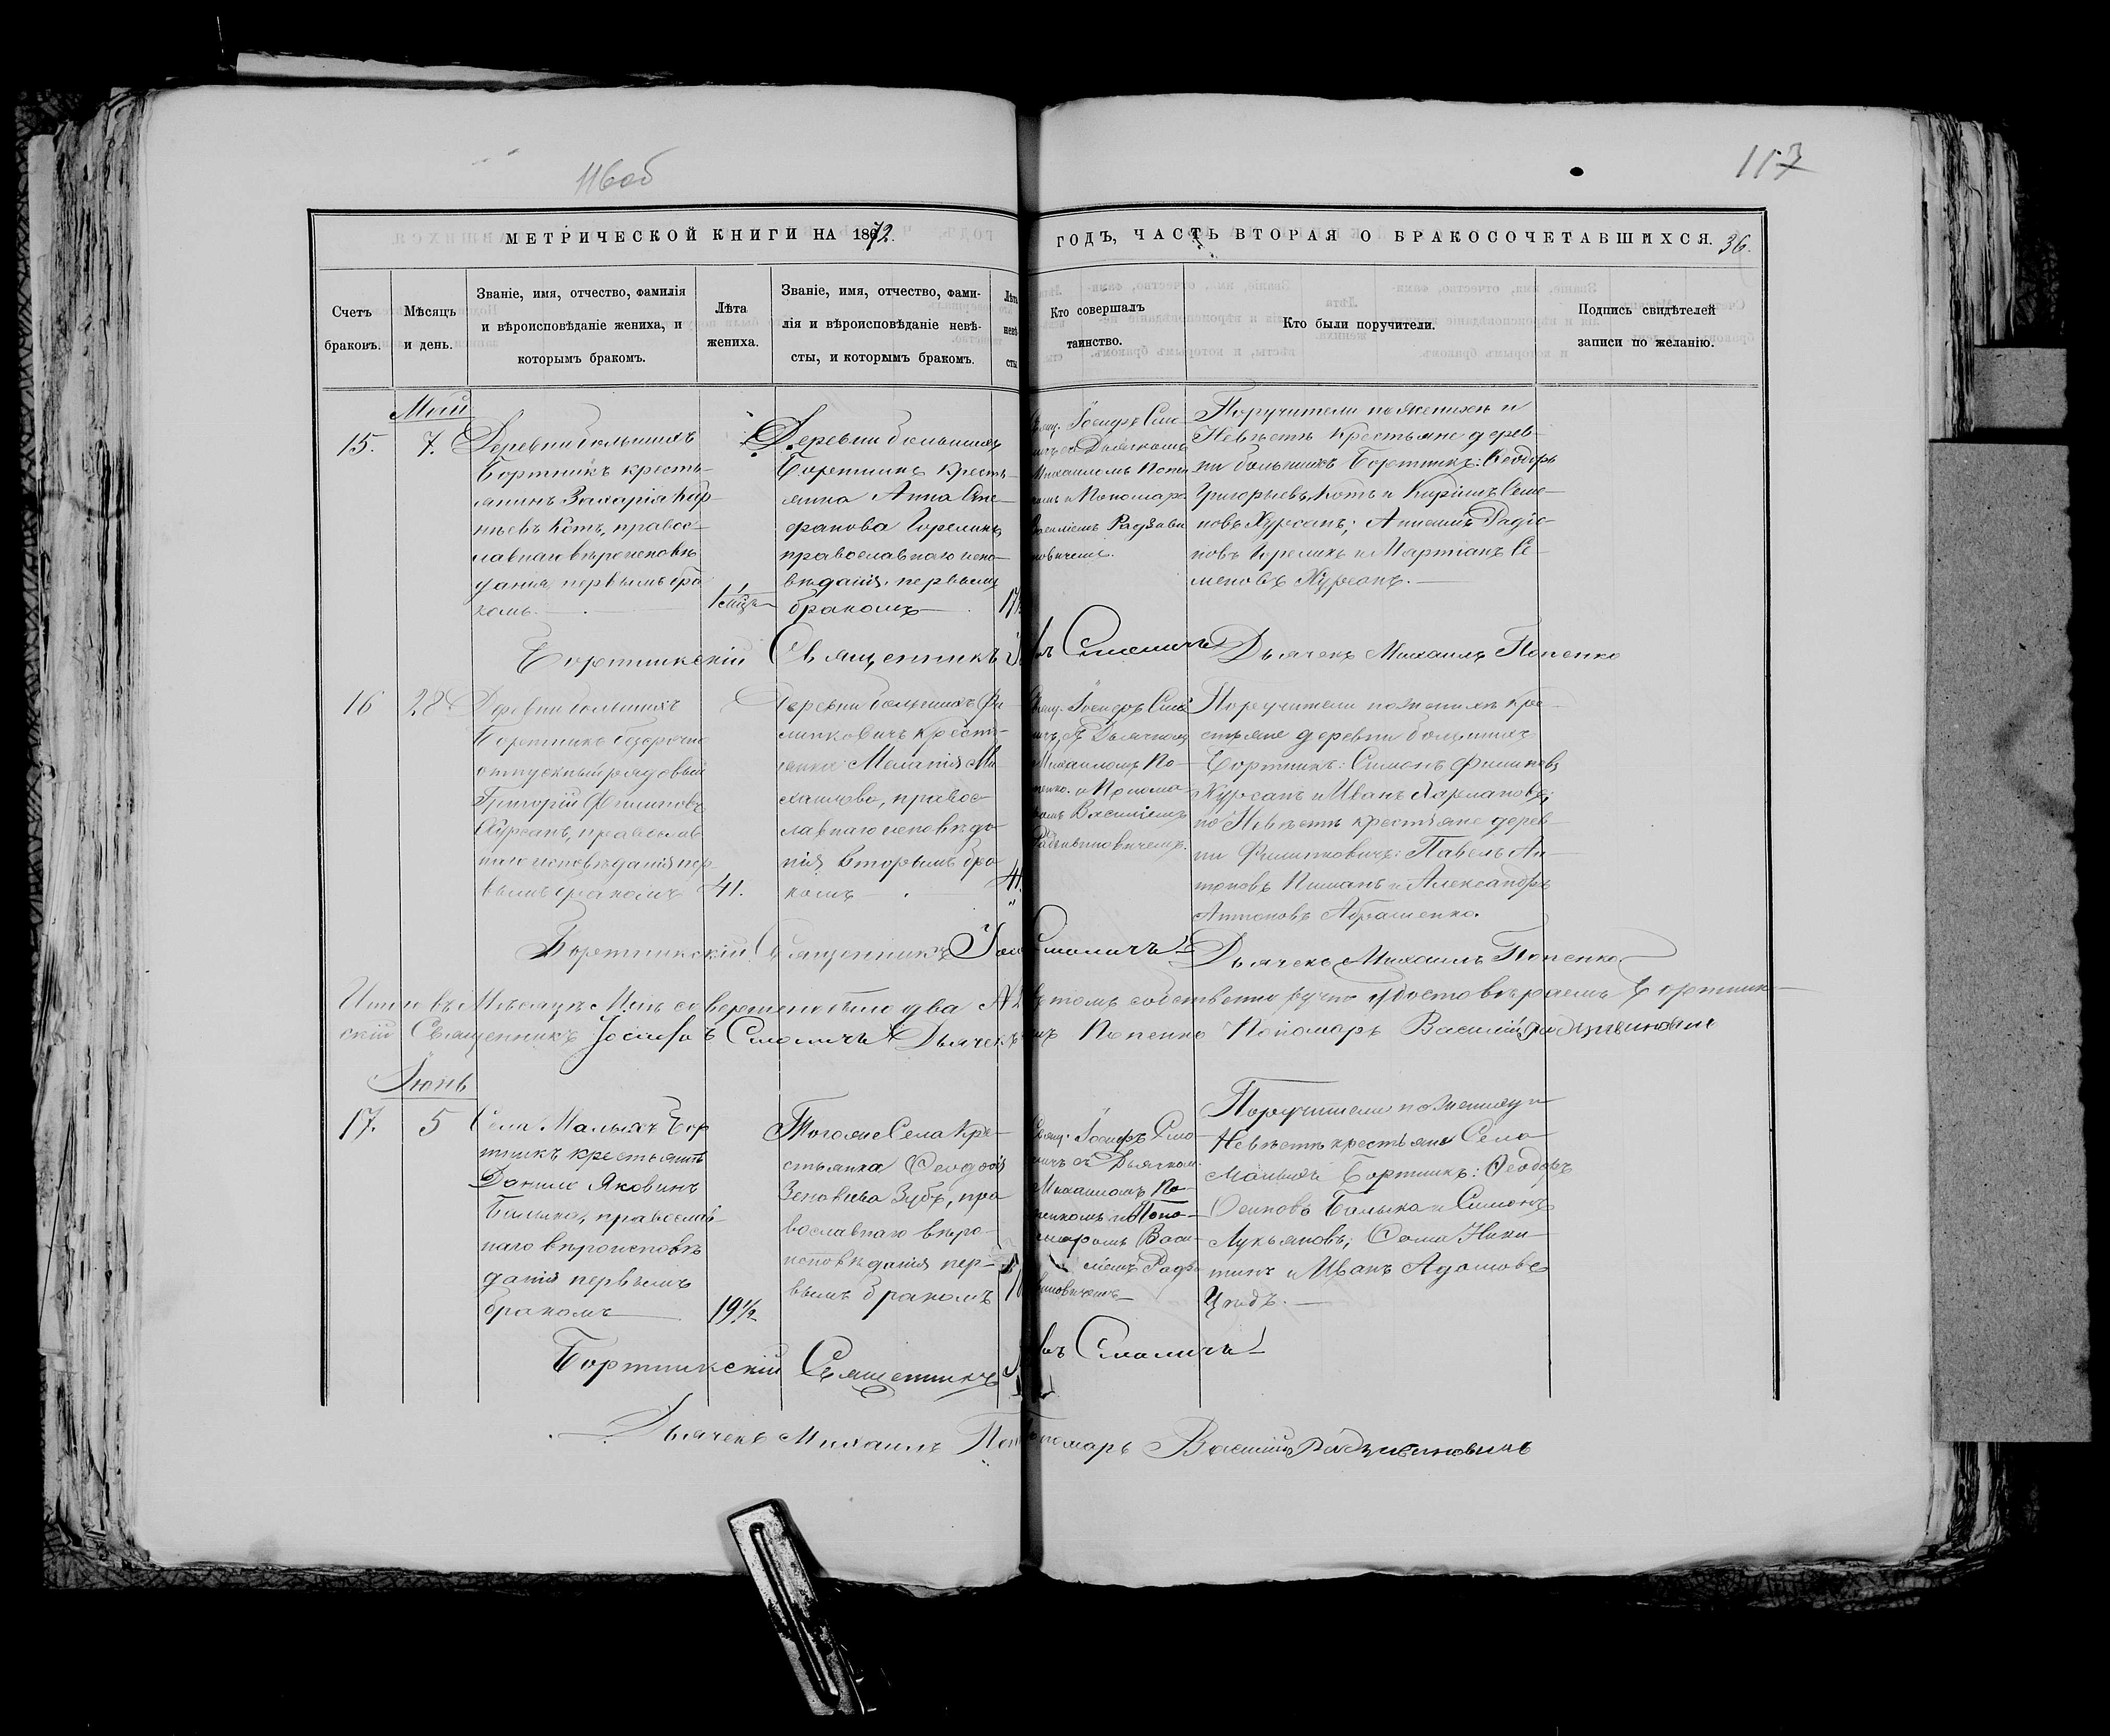 116об
117
МЕТРИЧЕСКОЙ КНИГИ НА 1872.
ГОДЪ, ЧАСТЬ ВТОРАЯ О БРАКОСОЧЕТАВШИХСЯ. 36.
Счетъ
браковъ.
Мѣсяцъ
и день.
Званіе, имя, отчество, фамилія
и вѣроисповѣданіе жениха, и
которымъ бракомъ.
Лѣта
жениха.
Званіе, имя, отчество, фами-
лія и вѣроисповѣданіе невѣ-
сты, и которымъ бракомъ.
Лѣта
невѣ
сты
Кто совершалъ
таинство.
Кто были поручители.
Подпись свидѣтелей
записи по желанію.
Май
15.
7.
Деревни большихъ
Бортникъ кресть-
янинъ Захарія Кор-
нѣевъ Котъ, правос-
лавнаго вѣроисповѣ
данія, первымъ бра
комъ.
Деревни большихъ
Бортникъ кресть-
янка Анна Сте-
фанова Гореликъ,
православнаго испо-
вѣданія, первымъ
бракомъ
17
Свящ. Іосифъ Смо-
съ Дьячкомъ
Михаиломъ Попен
и Пономаре
Василіемъ Радзиви
новичемъ.
Поручители по женихѣ и
Невѣстѣ крестьяне дерев-
ни большихъ Бортникъ: Ѳеодоръ
Григорьевъ Котъ и Кирилъ Семе-
новъ Хурсанъ; Радіо-
новъ Гореликъ и Мартіанъ Се-
меновъ Хурсанъ.
Бортникскій Священникъ
Смоличъ
Дьячекъ Михаилъ Попенко
16
28
Деревни большихъ
Бортникъ безсрочно
отпускный рядовый
Григорій Филиповъ
Хурсанъ, православ
наго исповѣданія пер
вымъ бракомъ
41.
Деревни большихъ Фи-
липковичъ кресть-
янка Меланія Ми
хайлова, правос-
лавнаго исповѣда-
нія вторымъ бра
комъ
41.
Свящ. Іосифъ Смол
Дьячкомъ
Михаиломъ По-
пенко. и Понома
Василіемъ
Радзивиновичемъ.
Поручители по женихѣ кре-
стьяне деревни большихъ
Бортникъ: Симонъ Филиповъ
Хурсанъ и Иванъ Харлановъ;
по Невѣстѣ крестьяне дерев-
ни Филипковичъ: Павелъ Ан-
тоновъ и Александръ
Антоновъ Абрашенко.
Бортникскій Священникъ
Смоличъ
Дьячекъ Михаилъ Попенко
Итого въ Мѣсяцѣ Маѣ совершено было два № 2
въ томъ собственноручно удостовѣряемъ Бортник-
скій Священникъ Іосифъ Смоличъ Дьячекъ
Попенко Пономарь Василій Радзивиновичъ
Іюнь
17.
5
Села Малыхъ Бор
тникъ крестьянинъ
Данило Яковинъ
Балыка, православ-
наго вѣроисповѣ
данія первымъ
бракомъ
19½
Того же Села кре-
стьянка Ѳеодосія
Зеновіева Зубъ, пра
вославнаго вѣро-
исповѣданія пер-
вымъ бракомъ
Свящ. Іосифъ Смо-
личъ съ Дьячком.
Михаиломъ По-
пенкомъ и Поно-
маромъ Васи-
ліемъ Радзи
виновичемъ
Поручители по Жениху и
Невѣстѣ крестьяне Села
Малыхъ Бортникъ: Ѳеодоръ
Осиповъ Балыка и Симонъ
Лукьяновъ; Ѳома Ники-
тинъ и Иванъ Адамовъ
Бортникскій Священникъ
Смоличъ
Дьячекъ Михаилъ
Пономарь Василій Радзивиновичъ